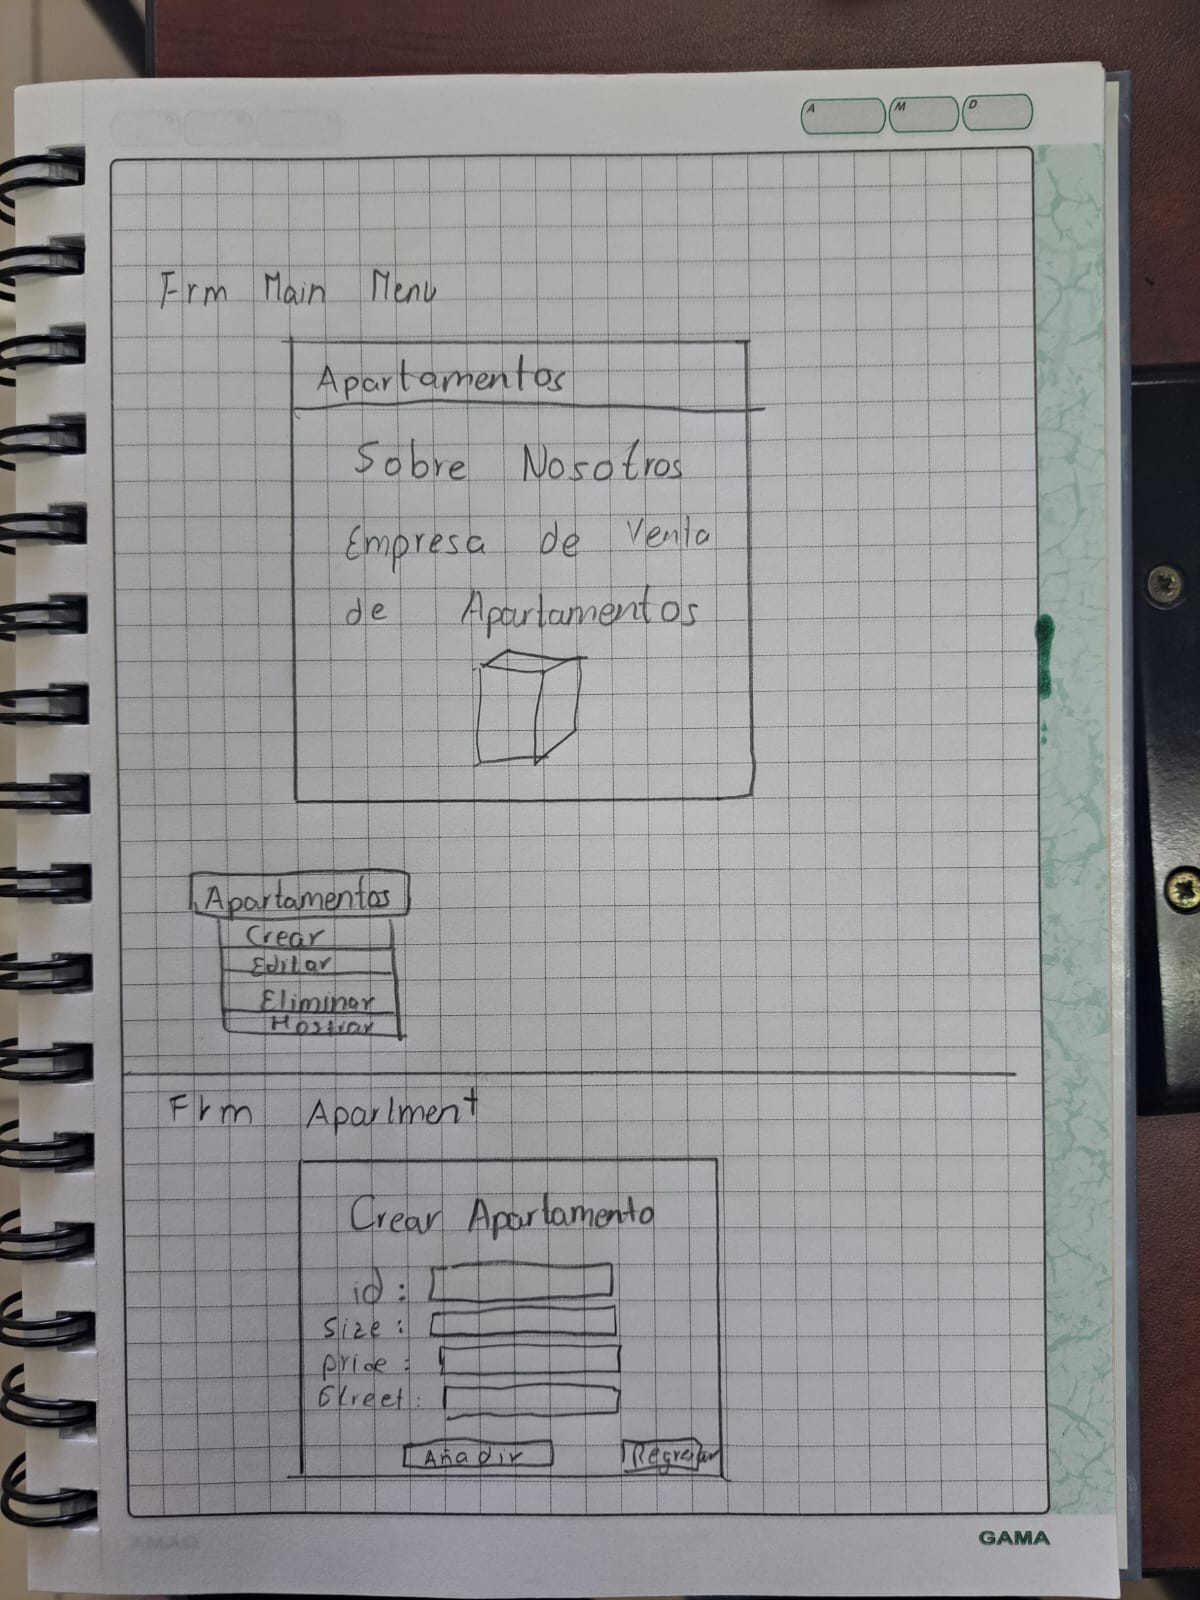 A M D
Frm Main Menu
Apartamentos
Sobre Nosotros
Empresa de Venta
de Apartamentos
Apartamentos
Crear
Editar
Eliminar
Mostrar
Frm Apartment
Crear Apartamento
id :
Size :
price :
Street :
Añadir Regresar
GAMA